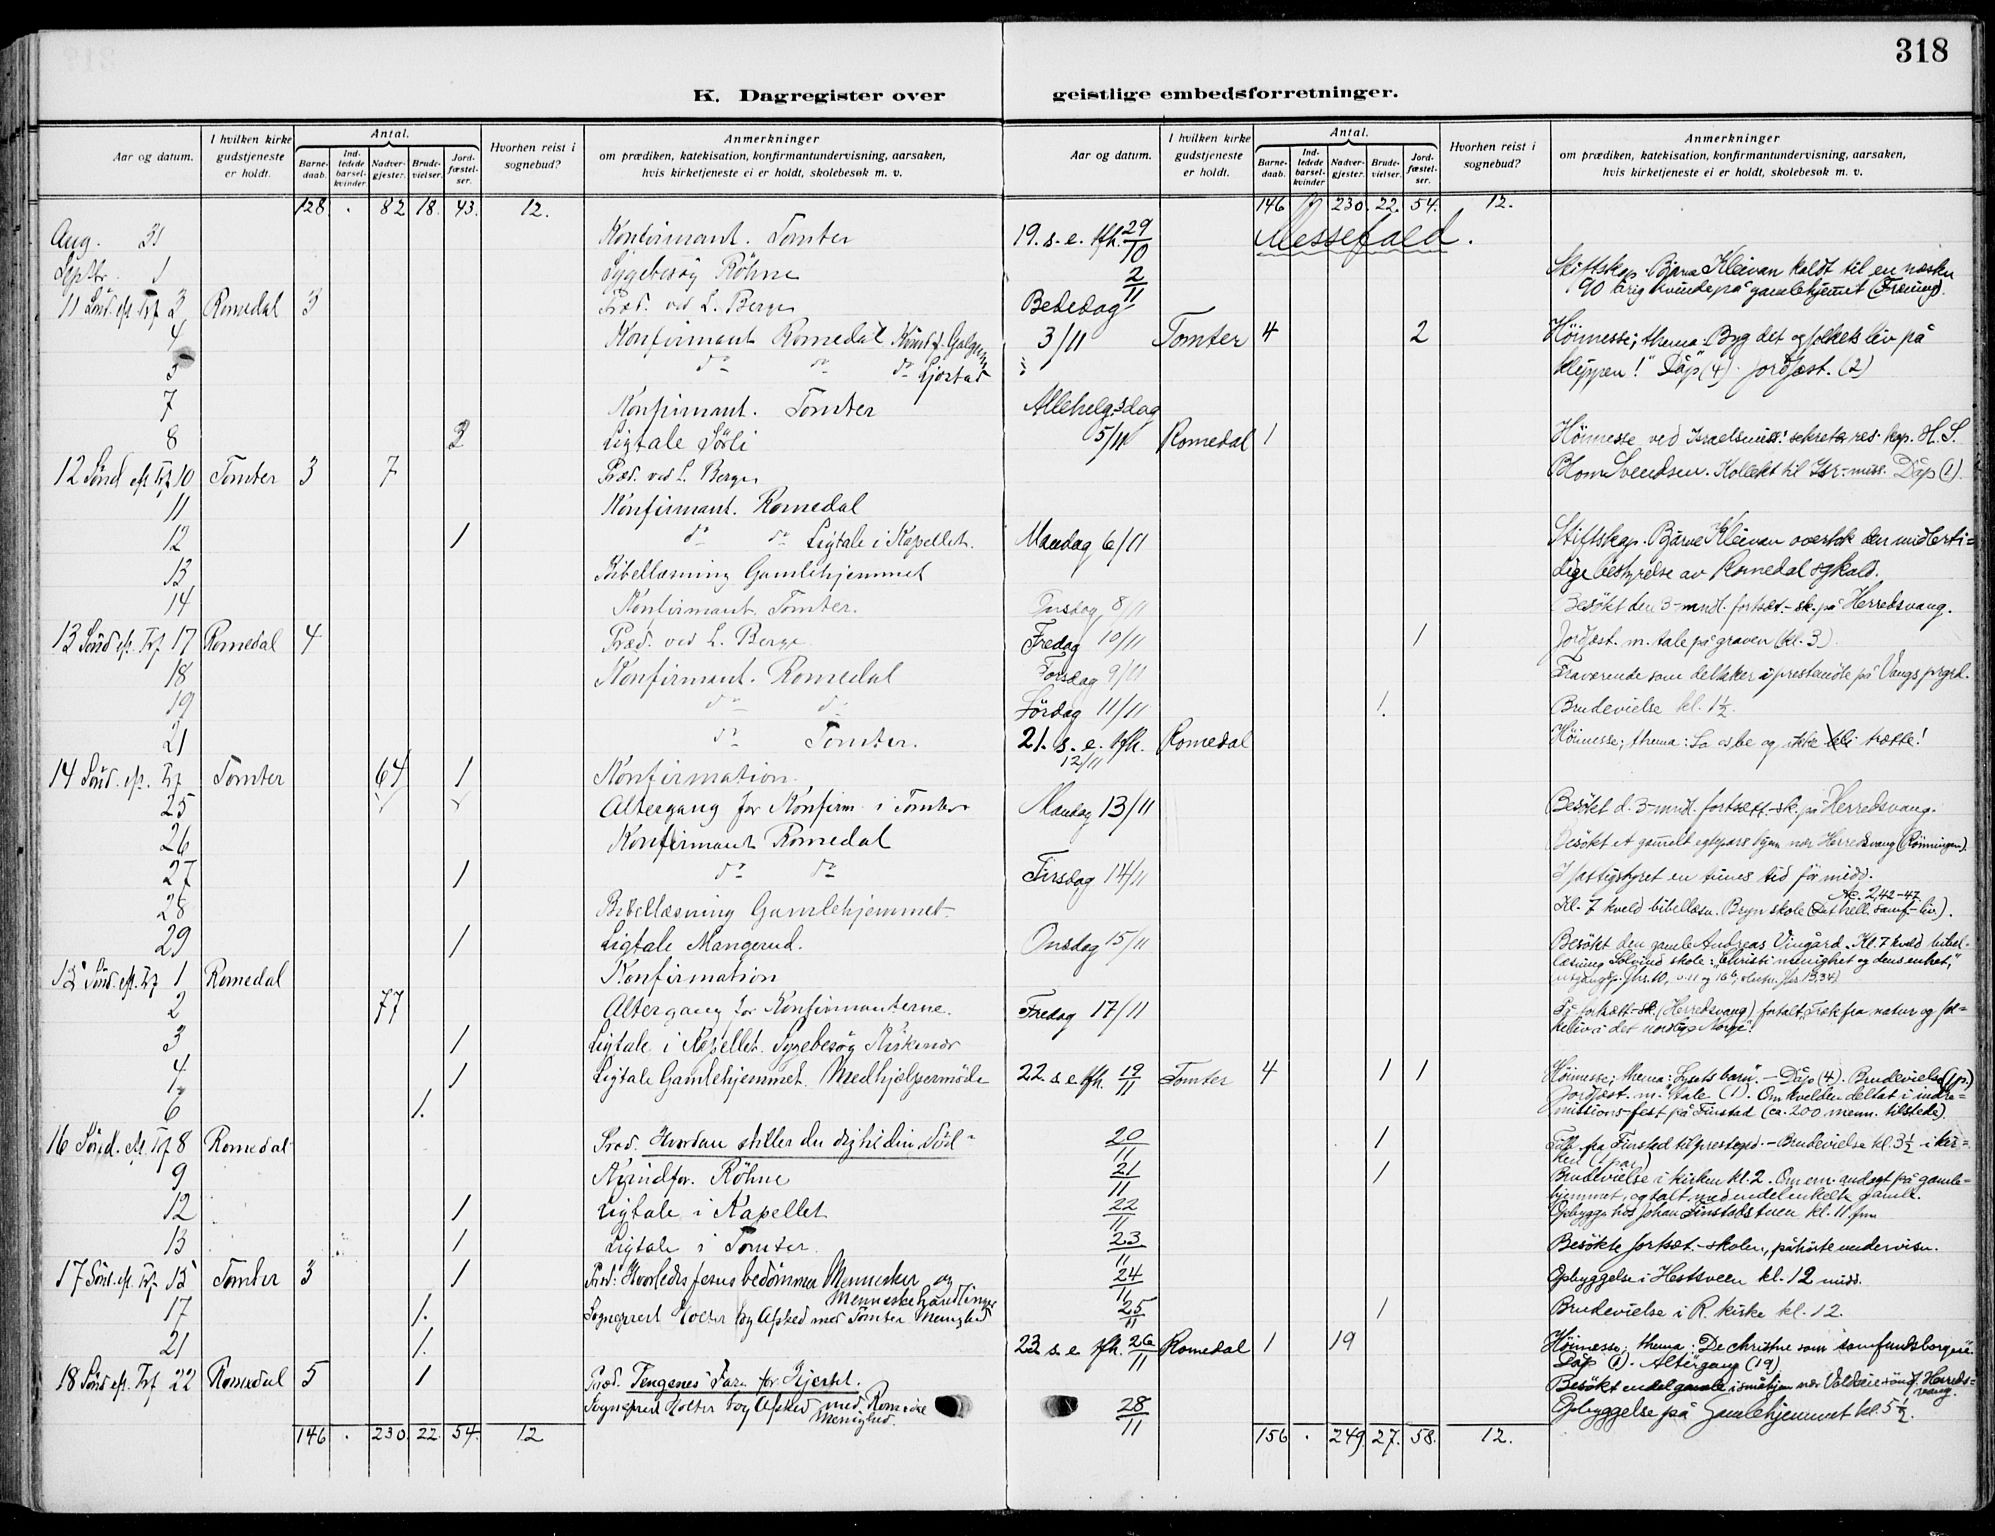 318
K. Dagregister over geistlige embedsforretninger.
Aar og datum.
I hvilken kirke gudstjeneste er holdt.
Antal.
Barne-daab.
Ind-ledede barsel-kvinder
Nadver-gjester.
Brude-vielser.
Jord-fæstel-ser.
Hvorhen reist i sognebud?
Anmerkninger
om prædiken, katekisation, konfirmantundervisning, aarsaken,
hvis kirketjeneste ei er holdt, skolebesøk m. v.
128 . 82 18. 43. 12.
Aug. 31 Konfirmant. Tomter
Septbr. 1 Sygebesøg Röhne
11 Sönd. eft. Trf 3 Romedal 3 Præd. ved L. Berge
4 Konfirmant Romedal
5 do do do Ljøstad
7 Konfirmant. Tomter
8 2 Ligtale Sörli
12 Sönd eft Trf 10 Tomter 3 7 Præd. ved L. Berge
11 Konfirmant. Romedal
12 1 do do Ligtale i Kapellet.
13 Bibellæsning Gamlehjemmet
14 Konfirmant. Tomter.
13 Sönd eft. Trf 17 Romedal 4 Præd. ved L. Berge
18 Konfirmant. Romedal
19 do do
21 do Tomter.
14 Sönd. eft. Trf Tomter 64 1 Konfirmation.
25 Altergang for Konfirm. i Tomter
26 Konfirmant Romedal
27 1 do do
28 Bibellæsning Gamlehjemmet
29 1 Ligtale Mangerud.
15 Sönd. eft. Trf 1 Romedal Konfirmation
2 77 Altergang for Konfirmanterne.
3 1 Ligtale i Kapellet. Sygebesøg Kirkenær
4 1 Ligtale Gamlehjemmet. Medhjælpermöde
6 1.
16 Sönd. eft. Trf 8 Romedal Præd. Hvordan stiller du dig til din Sjæl
9 Röhne
12 1 Ligtale i Kapellet
13 1 Ligtale i Tomter.
17 Sönd. eft. Trf. 15 Tomter 3 1 Præd: Hvorledes Jesus bedömmer Mennesker og
Menneskehandlinger
17 1. Sogneprest Holter tog Afsked med Tomter Menighed
21 1.
18 Sönd eft. Trf 22 Romedal 5 1 Præd. Pengenes Fare for Hjertet.
Sogneprest Holter tog Afsked med Romedal
Menighed.
146 . 230. 22. 54. 12
Aar og datum.
I hvilken kirke gudstjeneste er holdt.
Antal.
Barne-daab.
Ind-ledede barsel-kvinder
Nadver-gjester.
Brude-vielser.
Jord-fæstel-ser.
Hvorhen reist i sognebud?
Anmerkninger
om prædiken, katekisation, konfirmantundervisning, aarsaken,
hvis kirketjeneste ei er holdt, skolebesøk m. v.
146 230. 22. 54. 12.
19. s. e. tfh. 29/10 Messefald.
2/11 Stiftskap. Bjarne Kleivan kaldt til en næsten
90 årig kvinde på gamlehjemmet (Frening).
Bededag
3/11 Tomter 4 2 Höimesse; thema: Byg det og folkets liv på
klippen! Dåp (4). Jordfæst. (2)
Allehelgsdag
5/11 Romedal 1 Höimesse ved Israelsmiss. sekretær res. kap. H. S.
Blom Svendsen. Kollekt til Isr-miss. Dåp (1).
Mandag 6/11 Stiftskap. Bjarne Kleivan overtok den midlerti-
dige bestyrelse av Romedal sgkald.
Onsdag 8/11 Besökt den 3-mndl. fortsæt.-sk. på Herredsvang.
Fredag 10/11 1 Jordfæst. m. tale på graven (kl. 3).
Torsdag 9/11 Fraværende som deltaker i prestemöte på Vangs prgrd.
Lördag 11/11 1. Brudevielse kl. 1½
21. s. e. tfh. 12/11 Romedal Höimesse; thema: La os be og ikke bli trætte!
Mandag 13/11 Besökt d. 3-mndl. fortsætt.-sk. på Herredsvang.
Besökt et gammelt egtepars hjem nær Herredsvang (Rönningen).
Tirsdag 14/11 I fattigstyret en times tid för midd.
Kl. 7 kveld bibellæsn. Bryn skole (Det hell. samf.-liv). Ac. 2,42-47
Onsdag 15/11 Besökt den gamle Andreas Vingård. Kl. 7 kveld bibel-
læsning Solvind skole: "Christi menighet og dens enhet,"
Fredag 17/11 På fortsætt-sk. (Herredsvang) fortalt Træk fra natur og fol-
keliv i det nordlige Norge!
22. s. e. tfh. 19/11 Tomter 4 1 1 Höimesse; thema: "Lysets barn". – Dåp (4). Brudevielse (1 p.)
Jordfæst. m. tale (1). Om kvelden deltat i indre-
missions-fest på Finstad (ca. 200 menn. tilstede)
20/11 1 fra Finstad til prestegrd. – Brudevielse kl. 3½ i kir-
ken (1 par)
21/11 1 Brudevielse i kirken kl. 2. Om em. andagt på gamle-
hjemmet, og talt med endel enkelte gamle.
22/11 Opbygge hos Johan Finstadstuen kl. 11 fm
23/11 Besökte fortsæt.-skolen, påhörte undervisn.
24/11 Opbyggelse i Hestsveen kl. 12 midd.
25/11 1 Brudevielse i R. kirke kl. 12.
23. s. e. tfh. 26/11 Romedal 1 19 Höimesse; thema: De christne som samfundsborgere.
Dåp (1). Altergang (19)
Besökt endel gamle i småhjem nær Herreds-
vang.
28/11 Opbyggelse på Gamlehjemmet kl. 5½.
156 . 249. 27. 58. 12.